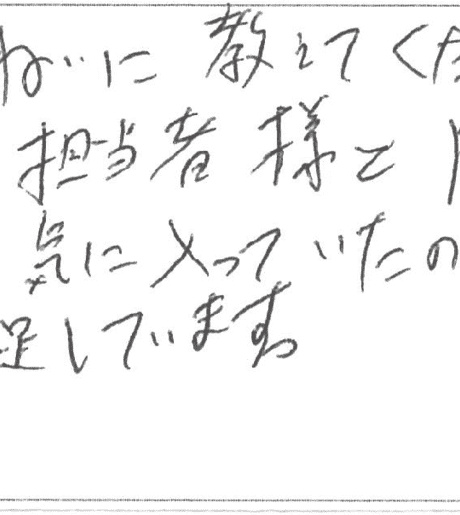 ねいに教えてくだ
担当者様と
気に入っていたの
足しています。